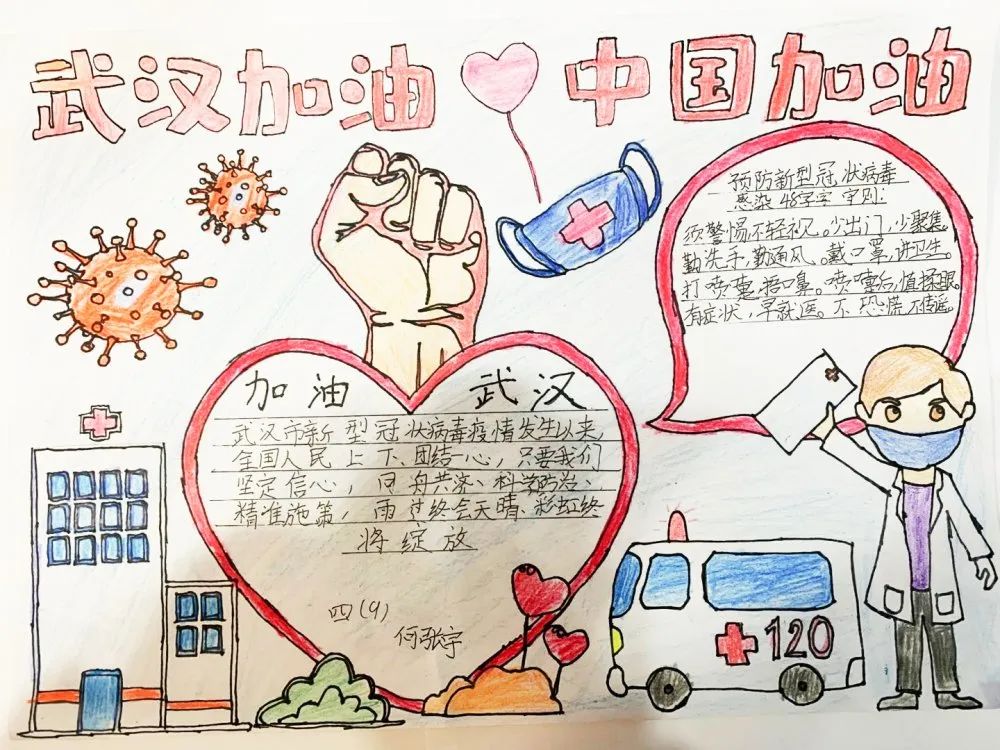 武汉加油 中国加油
预防新型冠状病毒
感染48字守则:
须警惕,不轻视。少出门,少聚集。
勤洗手,勤通风。戴口罩,讲卫生。
打喷嚏,捂口鼻。喷嚏后,慎揉眼。
有症状,早就医。不恐慌,不传谣。
加油 武汉
武汉市新型冠状病毒疫情发生以来,
全国人民上下、团结一心,只要我们
坚定信心,同舟共济、科学防治、
精准施策,雨过终会天晴、彩虹终
将绽放
四(9)
何张宇
120